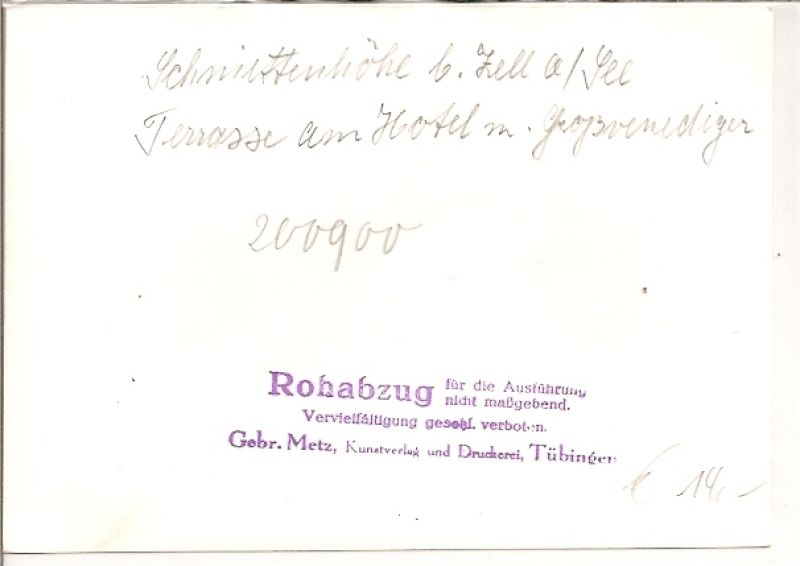 Schmiettenhöhe b. Zell a/See
Terrasse am Hotel m. Großvenediger
200900
Rohabzug für die Ausführung
nicht maßgebend.
Vervielfältigung gesetzl. verboten.
Gebr. Metz, Kunstverlag und Druckerei, Tübingen
€ 14,-